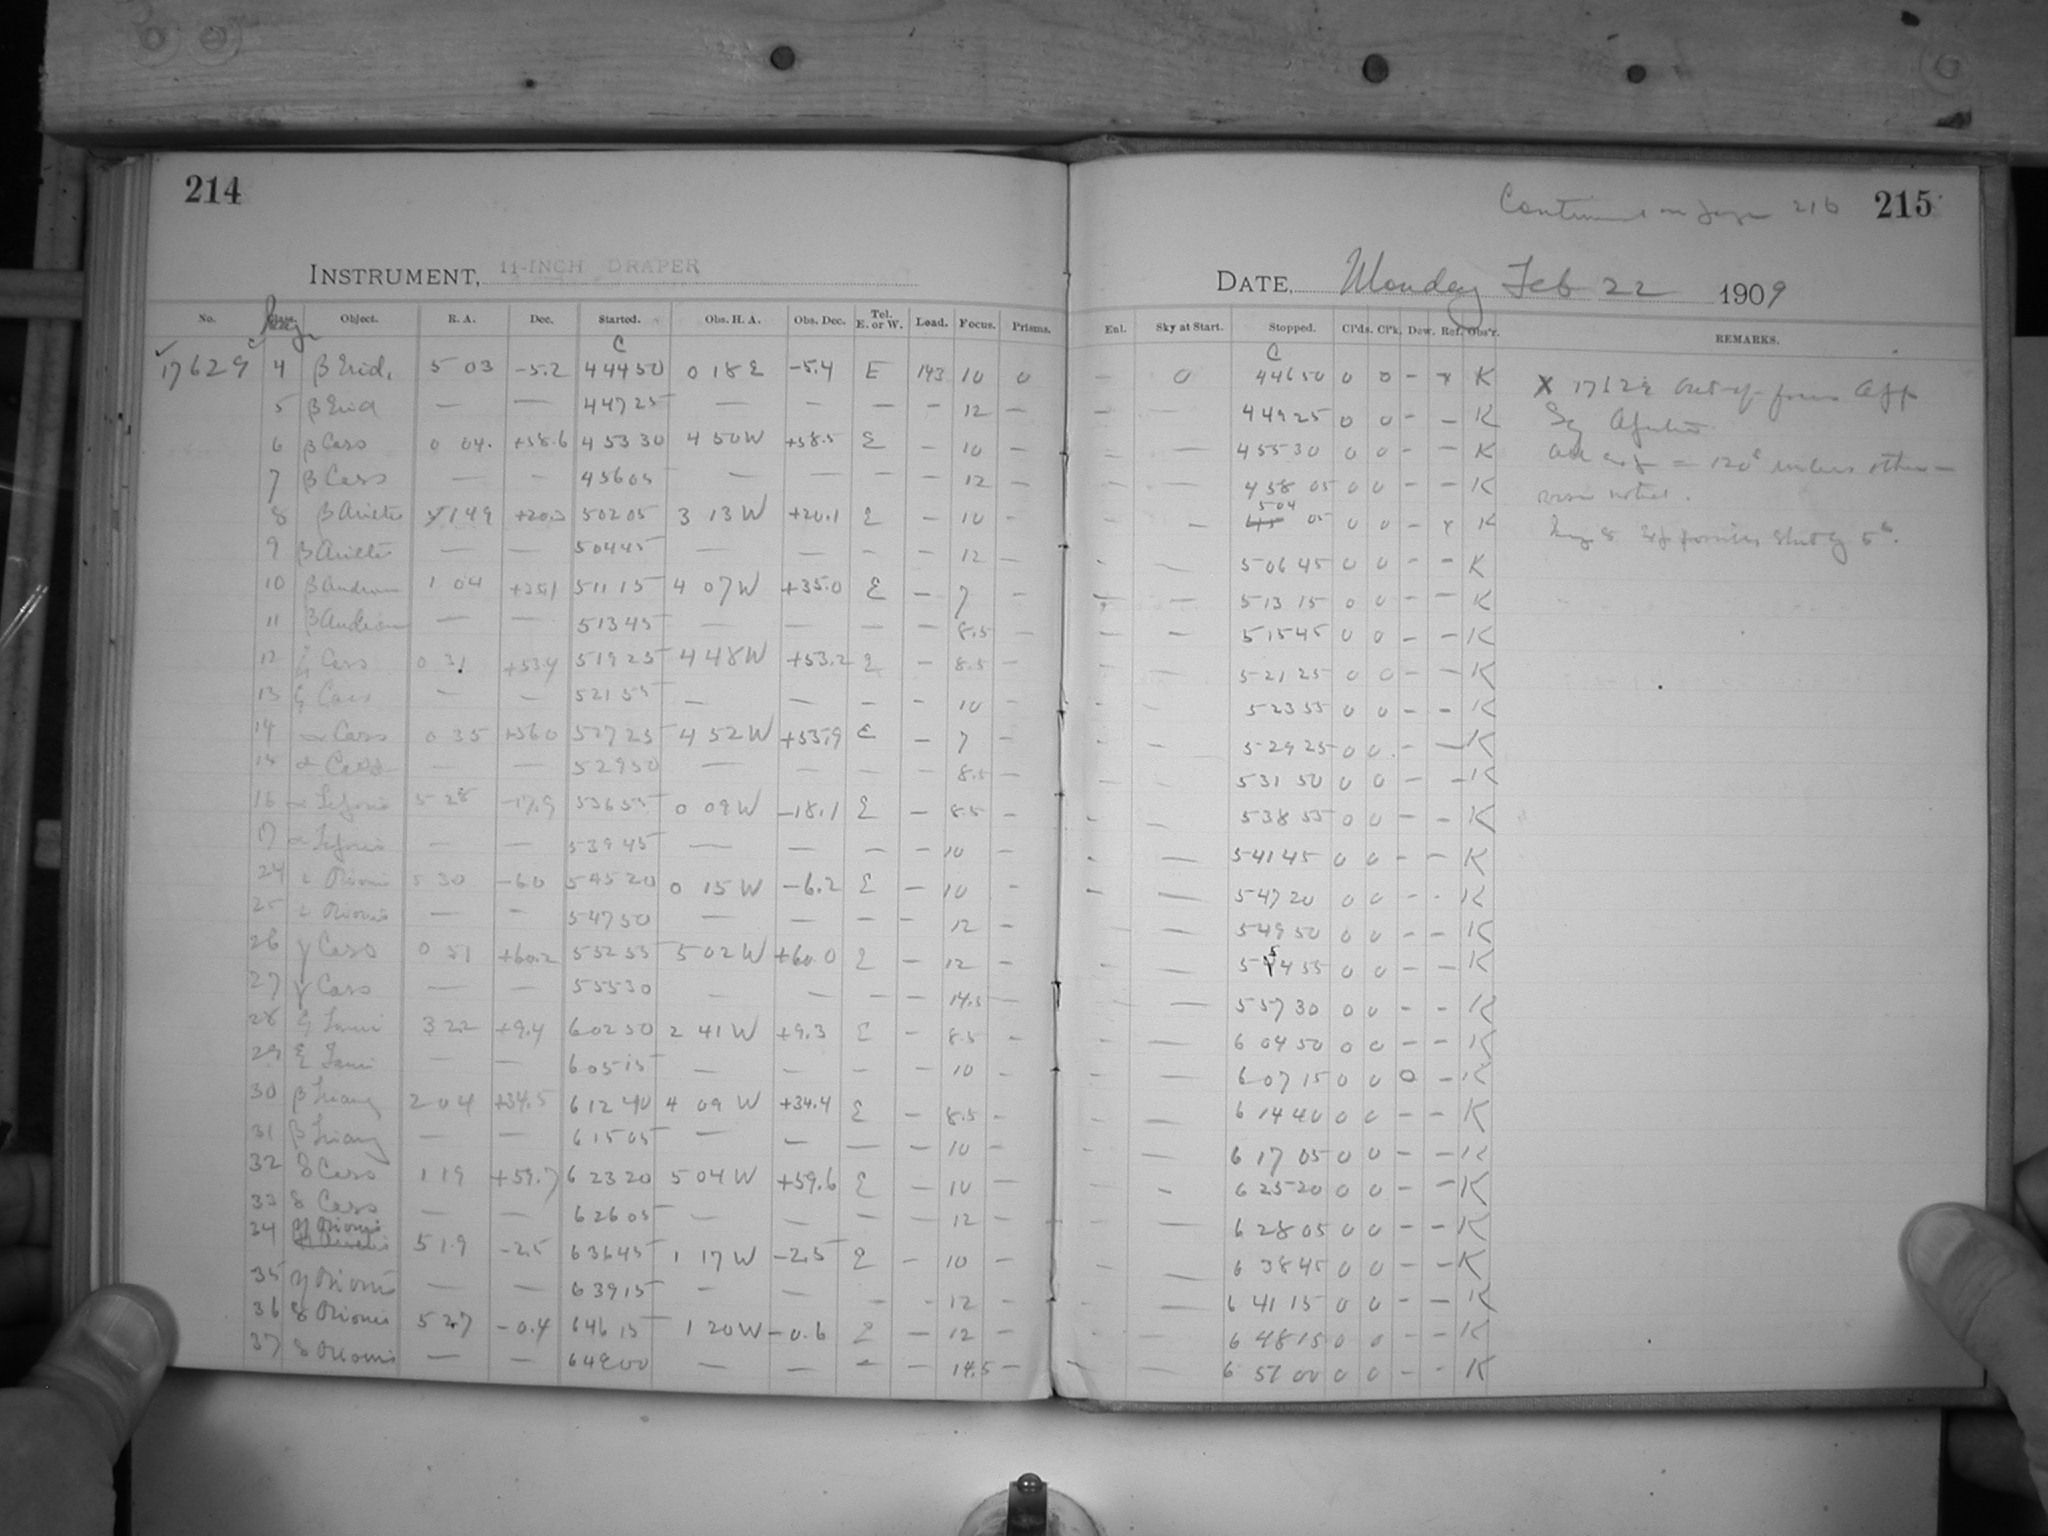 214
215
Continued on page 216
INSTRUMENT, 11-INCH DRAPER
DATE, Monday Feb 22 1909
No. Class. Object. R. A. Dec. Started. Obs. H. A. Obs. Dec. Tel. E. or W. Load. Focus. Prisms. Enl. Sky at Start. Stopped. Cl'ds. Cl'k. Dew. Ref. Obs'r. REMARKS.
C C
17629 4 β Erid. 5 03 -5.2 4 44 50 0 18 E -5.4 E 143 10 0 — 0 4 46 50 0 0 - x K
5 β Erid — — 4 47 25 — — — — 12 — — — 4 49 25 0 0 - - K
6 β Cass 0 04. +58.6 4 53 30 4 50 W +58.5 E — 10 — — — 4 55 30 0 0 - - K
7 β Cass — — 4 56 05 — — — — 12 — — — 4 58 05 0 0 - - K
8 β Arietis 1 49 +20.3 5 02 05 3 13 W +20.1 E — 10 — — 5 04 05 0 0 - x K
9 β Arietis — — 5 04 45 — — — — 12 — - — 5 06 45 0 0 - - K
10 β Androm 1 04 +35.1 5 11 15 4 07 W +35.0 E — 7 — — — 5 13 15 0 0 - - K
11 β Androm — — 5 13 45 — — — — 8.5 — — — 5 15 45 0 0 - - K
12 ζ Cass 0 31 +53.4 5 19 25 4 48 W +53.2 E — 8.5 — — — 5 21 25 0 0 - - K
13 ζ Cass — — 5 21 55 — — — — 10 — — — 5 23 55 0 0 - - K
14 α Cass 0 35 +56.0 5 27 25 4 52 W +55.9 E — 7 — - - 5 29 25 0 0 - - K
15 α Cass — — 5 29 50 — — — — 8.5 — — — 5 31 50 0 0 - - K
16 α Leporis 5 28 -17.9 5 36 55 0 09 W -18.1 E — 8.5 — - — 5 38 55 0 0 - - K
17 α Leporis — — 5 39 45 — — — — 10 — - — 5 41 45 0 0 - - K
24 ι Orionis 5 30 -6.0 5 45 20 0 15 W -6.2 E — 10 - - — 5 47 20 0 0 - - K
25 ι Orionis — — 5 47 50 — — — — 12 — — — 5 49 50 0 0 - - K
26 γ Cass 0 51 +60.2 5 52 55 5 02 W +60.0 E — 12 — — — 5 54 55 0 0 - - K
27 γ Cass — — 5 55 30 — — — — 14.5 — — — 5 57 30 0 0 - - K
28 ξ Tauri 3 22 +9.4 6 02 50 2 41 W +9.3 E — 8.5 — — — 6 04 50 0 0 - - K
29 ξ Tauri — — 6 05 15 — — — — 10 — — — 6 07 15 0 0 0 - K
30 β Triang 2 04 +34.5 6 12 40 4 09 W +34.4 E — 8.5 — — — 6 14 40 0 0 - - K
31 β Triang — — 6 15 05 — — — — 10 — — — 6 17 05 0 0 - - K
32 δ Cass 1 19 +59.7 6 23 20 5 04 W +59.6 E — 10 — — - 6 25 20 0 0 - - K
33 δ Cass — — 6 26 05 — — — — 12 — — — 6 28 05 0 0 - - K
34 η Orionis 5 19 -2.5 6 36 45 1 17 W -2.5 E — 10 — — — 6 38 45 0 0 - - K
35 η Orionis — — 6 39 15 — — — — 12 — — — 6 41 15 0 0 - - K
36 δ Orionis 5 27 -0.4 6 46 15 1 20 W -0.6 E — 12 — - — 6 48 15 0 0 - - K
37 δ Orionis — — 6 49 00 — — — — 14.5 — — — 6 51 00 0 0 - - K
X 17629 Out of focus
= 120s unless other-
wise noted.